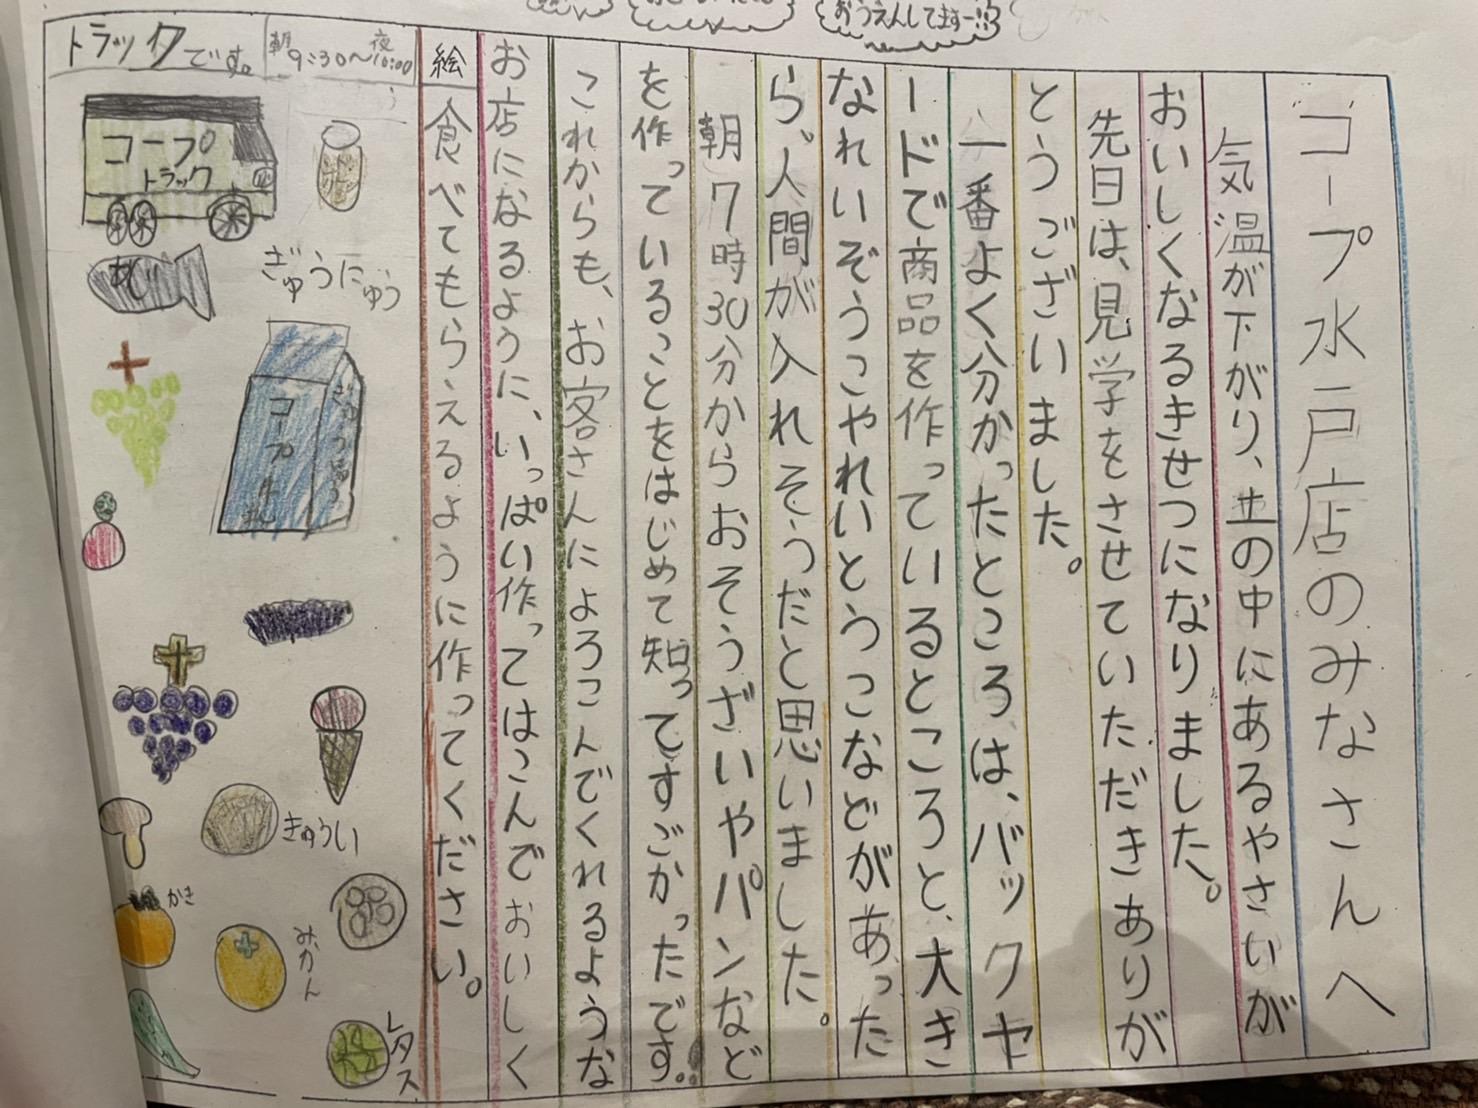 おうえんしてますー!!
コープ水戸店のみなさんへ
気温が下がり、土の中にあるやさいが
おいしくなるきせつになりました。
先日は、見学をさせていただきありが
とうございました。
一番よく分かったところは、バックヤ
ードで商品を作っているところと、大き
なれいぞうこやれいとうこなどがあった
ら、人間が入れそうだと思いました。
朝7時30分からおそうざいやパンなど
を作っていることをはじめて知ってすごかったです。
これからも、お客さんによろこんでくれるような
お店になるように、いっぱい作ってはこんでおいしく
食べてもらえるように作ってください。
絵
朝9:30〜夜10:00
トラックです。
コープ
トラック
ぎゅうにゅう
コープ
ぎゅうにゅう
きゅうい
かき
みかん
レタス